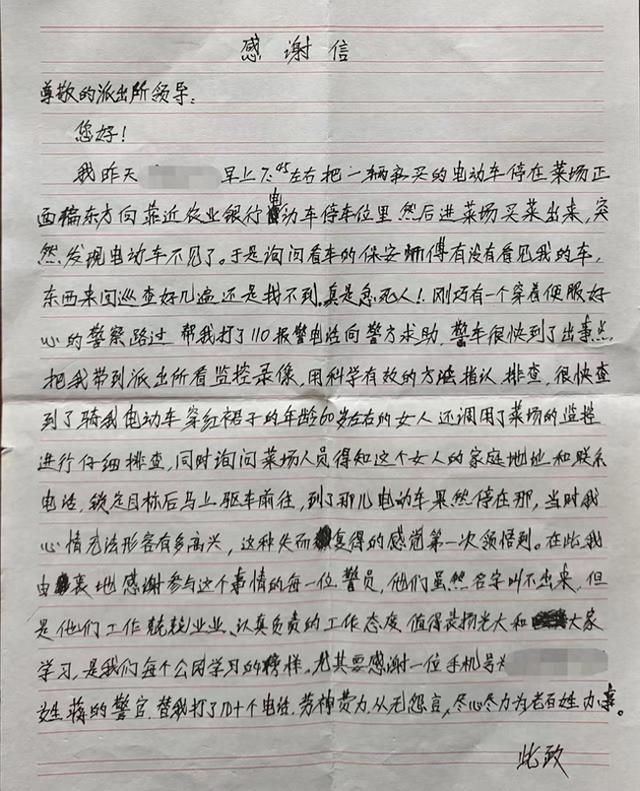 感谢信
尊敬的派出所领导：
您好！
我昨天 早上7:45左右把一辆新买的电动车停在菜场正
西偏东方向靠近农业银行电动车停车位里然后进菜场买菜出来，突
然，发现电动车不见了。于是询问看车的保安师傅有没有看见我的车，
东西来回巡查好几遍还是找不到。真是急死人！刚巧有一个穿着便服好
心的警察路过 帮我打了110报警电话向警方求助，警车很快到了出事点
把我带到派出所看监控录像，用科学有效的方法指认、排查，很快查
到了骑我电动车穿红裙子的年龄60岁左右的女人还调用了菜场的监控
进行仔细排查，同时询问菜场人员得知这个女人的家庭地址和联系
电话，锁定目标后马上驱车前往，到了那儿电动车果然停在那，当时我
心情无法形容有多高兴，这种失而复得的感觉第一次领悟到。在此我
由衷地感谢参与这个事情的每一位警员，他们虽然名字叫不出来，但
是他们工作兢兢业业、认真负责的工作态度 值得发扬光大和大家
学习，是我们每个公民学习的榜样。尤其要感谢一位手机号为
姓蒋的警官，替我打了几十个电话，劳神费力，从无怨言，尽心尽力为老百姓办事。
此致